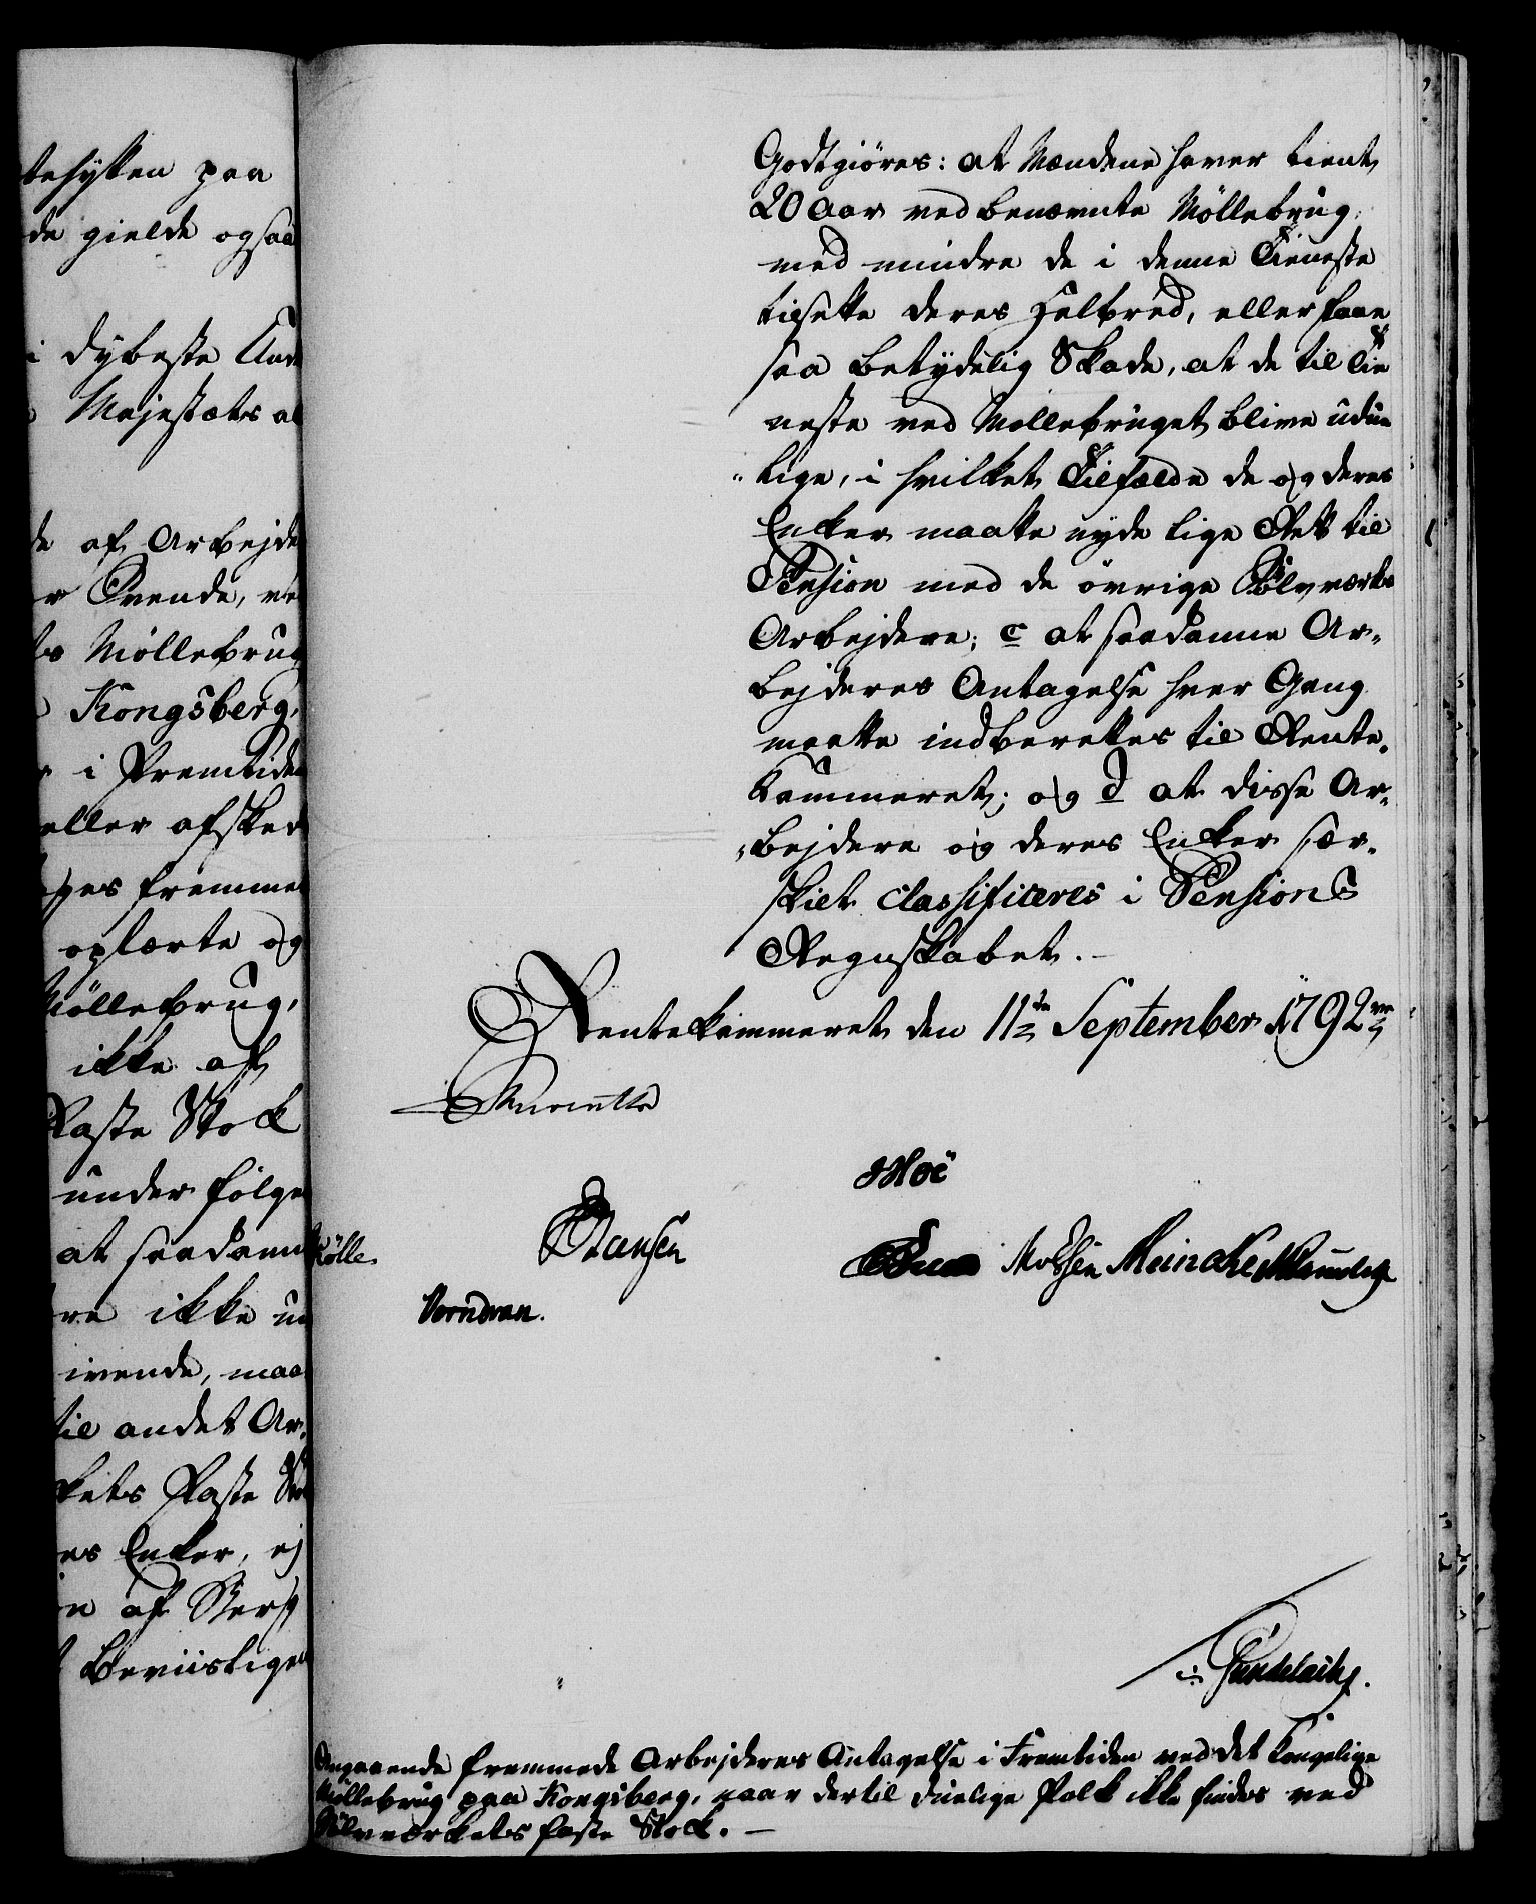 tessyken paa
de gielde ogsaa
i dybeste Und
Majestæts al
de af Arbejde
r Svende, ve
ts Møllebrug
Kongsberg,
r i Fremtiden
eller afsked
ges fremme
oplærte og
Møllebrug,
ikke af
Faste Stok
under følge
at saadann
re ikke u
ivende, maa
til andet Ar,
kets Faste Sto
es Enker, ej
on af Werk
Beviislige
Godtgiöres: at Mændene haver tient
20 Aar ved benævnte Möllebrug,
med mindre de i denne Tieneste
tilsette deres Helbred, eller faae
saa betydelig Skade, at de til Tie
neste ved Møllebruget blive udue
"lige, i hvilket Tilfælde de og deres
Enker maatte nyde lige Rett til
Pension med de övrige Sölvværks
Arbejdere; c at saadanne Ar-
bejderes Antagelse hver Gang
maatte indberettes til Rente-
Kammeret; og d at disse Ar-
"bejdere og deres Enker sær-
skilt classificeres i Pensions
Regnskabet.-
Rentekammeret den 11te September 1792
Moë
Hansen
Mölle.
Meincke
Vorndran.
Gundelach.
Angaaende fremmede Arbejderes Antagelse i Fremtiden ved det Kongelige
Møllebrug paa Kongsberg, naar dertil duelige Folk ikke findes ved
Sölvværkets faste Stock. -